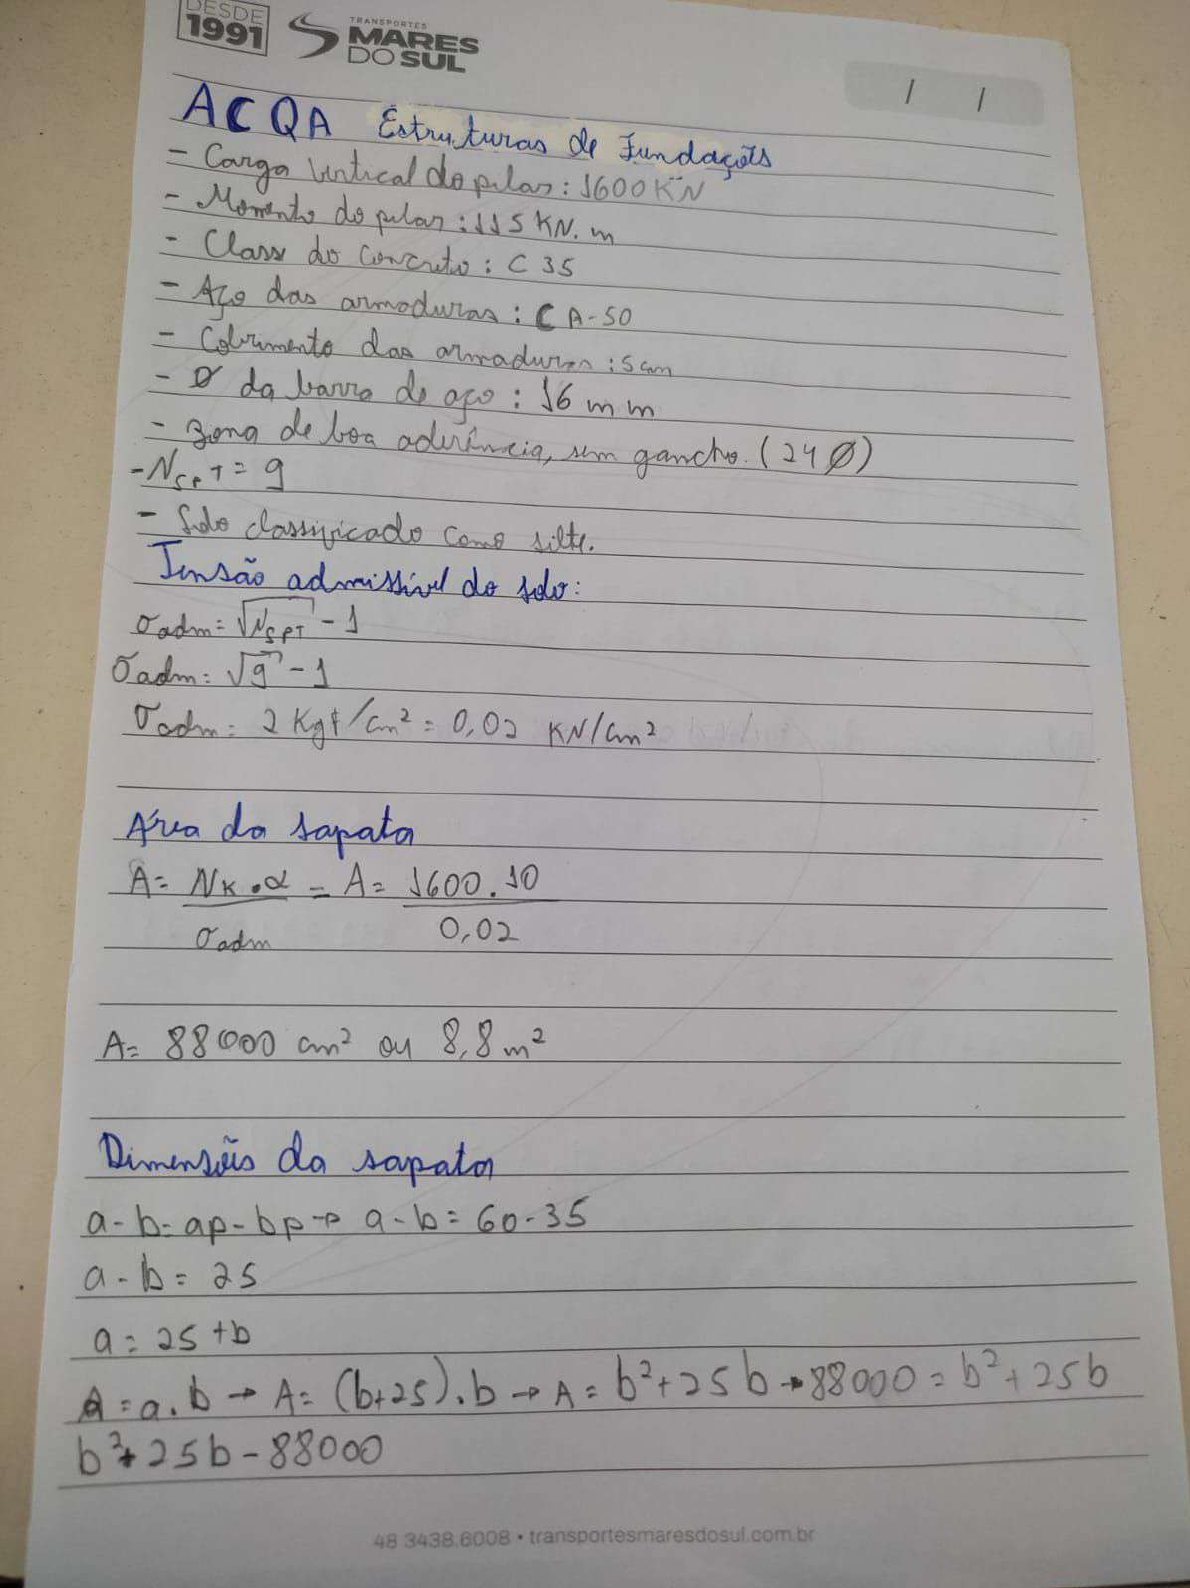 DESDE
1991
TRANSPORTES
MARES
DO SUL
/ /
ACQA Estruturas de Fundações
- Carga vertical do pilar: 1600 KN
- Momento do pilar: 115 KN.m
- Classe do concreto: C 35
- Aço das armaduras: CA-50
- Cobrimento das armaduras: 5 cm
- Ø da barra de aço: 16 mm
- Zona de boa aderência, sem gancho. (24 Ø)
- NSPT = 9
- Solo classificado como silte.
Tensão admissível do solo:
σadm = √NSPT - 1
σadm = √9 - 1
σadm = 2 Kgf/cm² = 0,02 KN/cm²
Área da sapata
A = NK . α = A = 1600 . 10
σadm 0,02
A = 88000 cm² ou 8,8 m²
Dimensões da sapata
a - b = ap - bp → a - b = 60 - 35
a - b = 25
a = 25 + b
A = a . b → A = (b+25) . b → A = b² + 25b → 88000 = b² + 25b
b² + 25b - 88000
48 3438.6008 • transportesmaresdosul.com.br